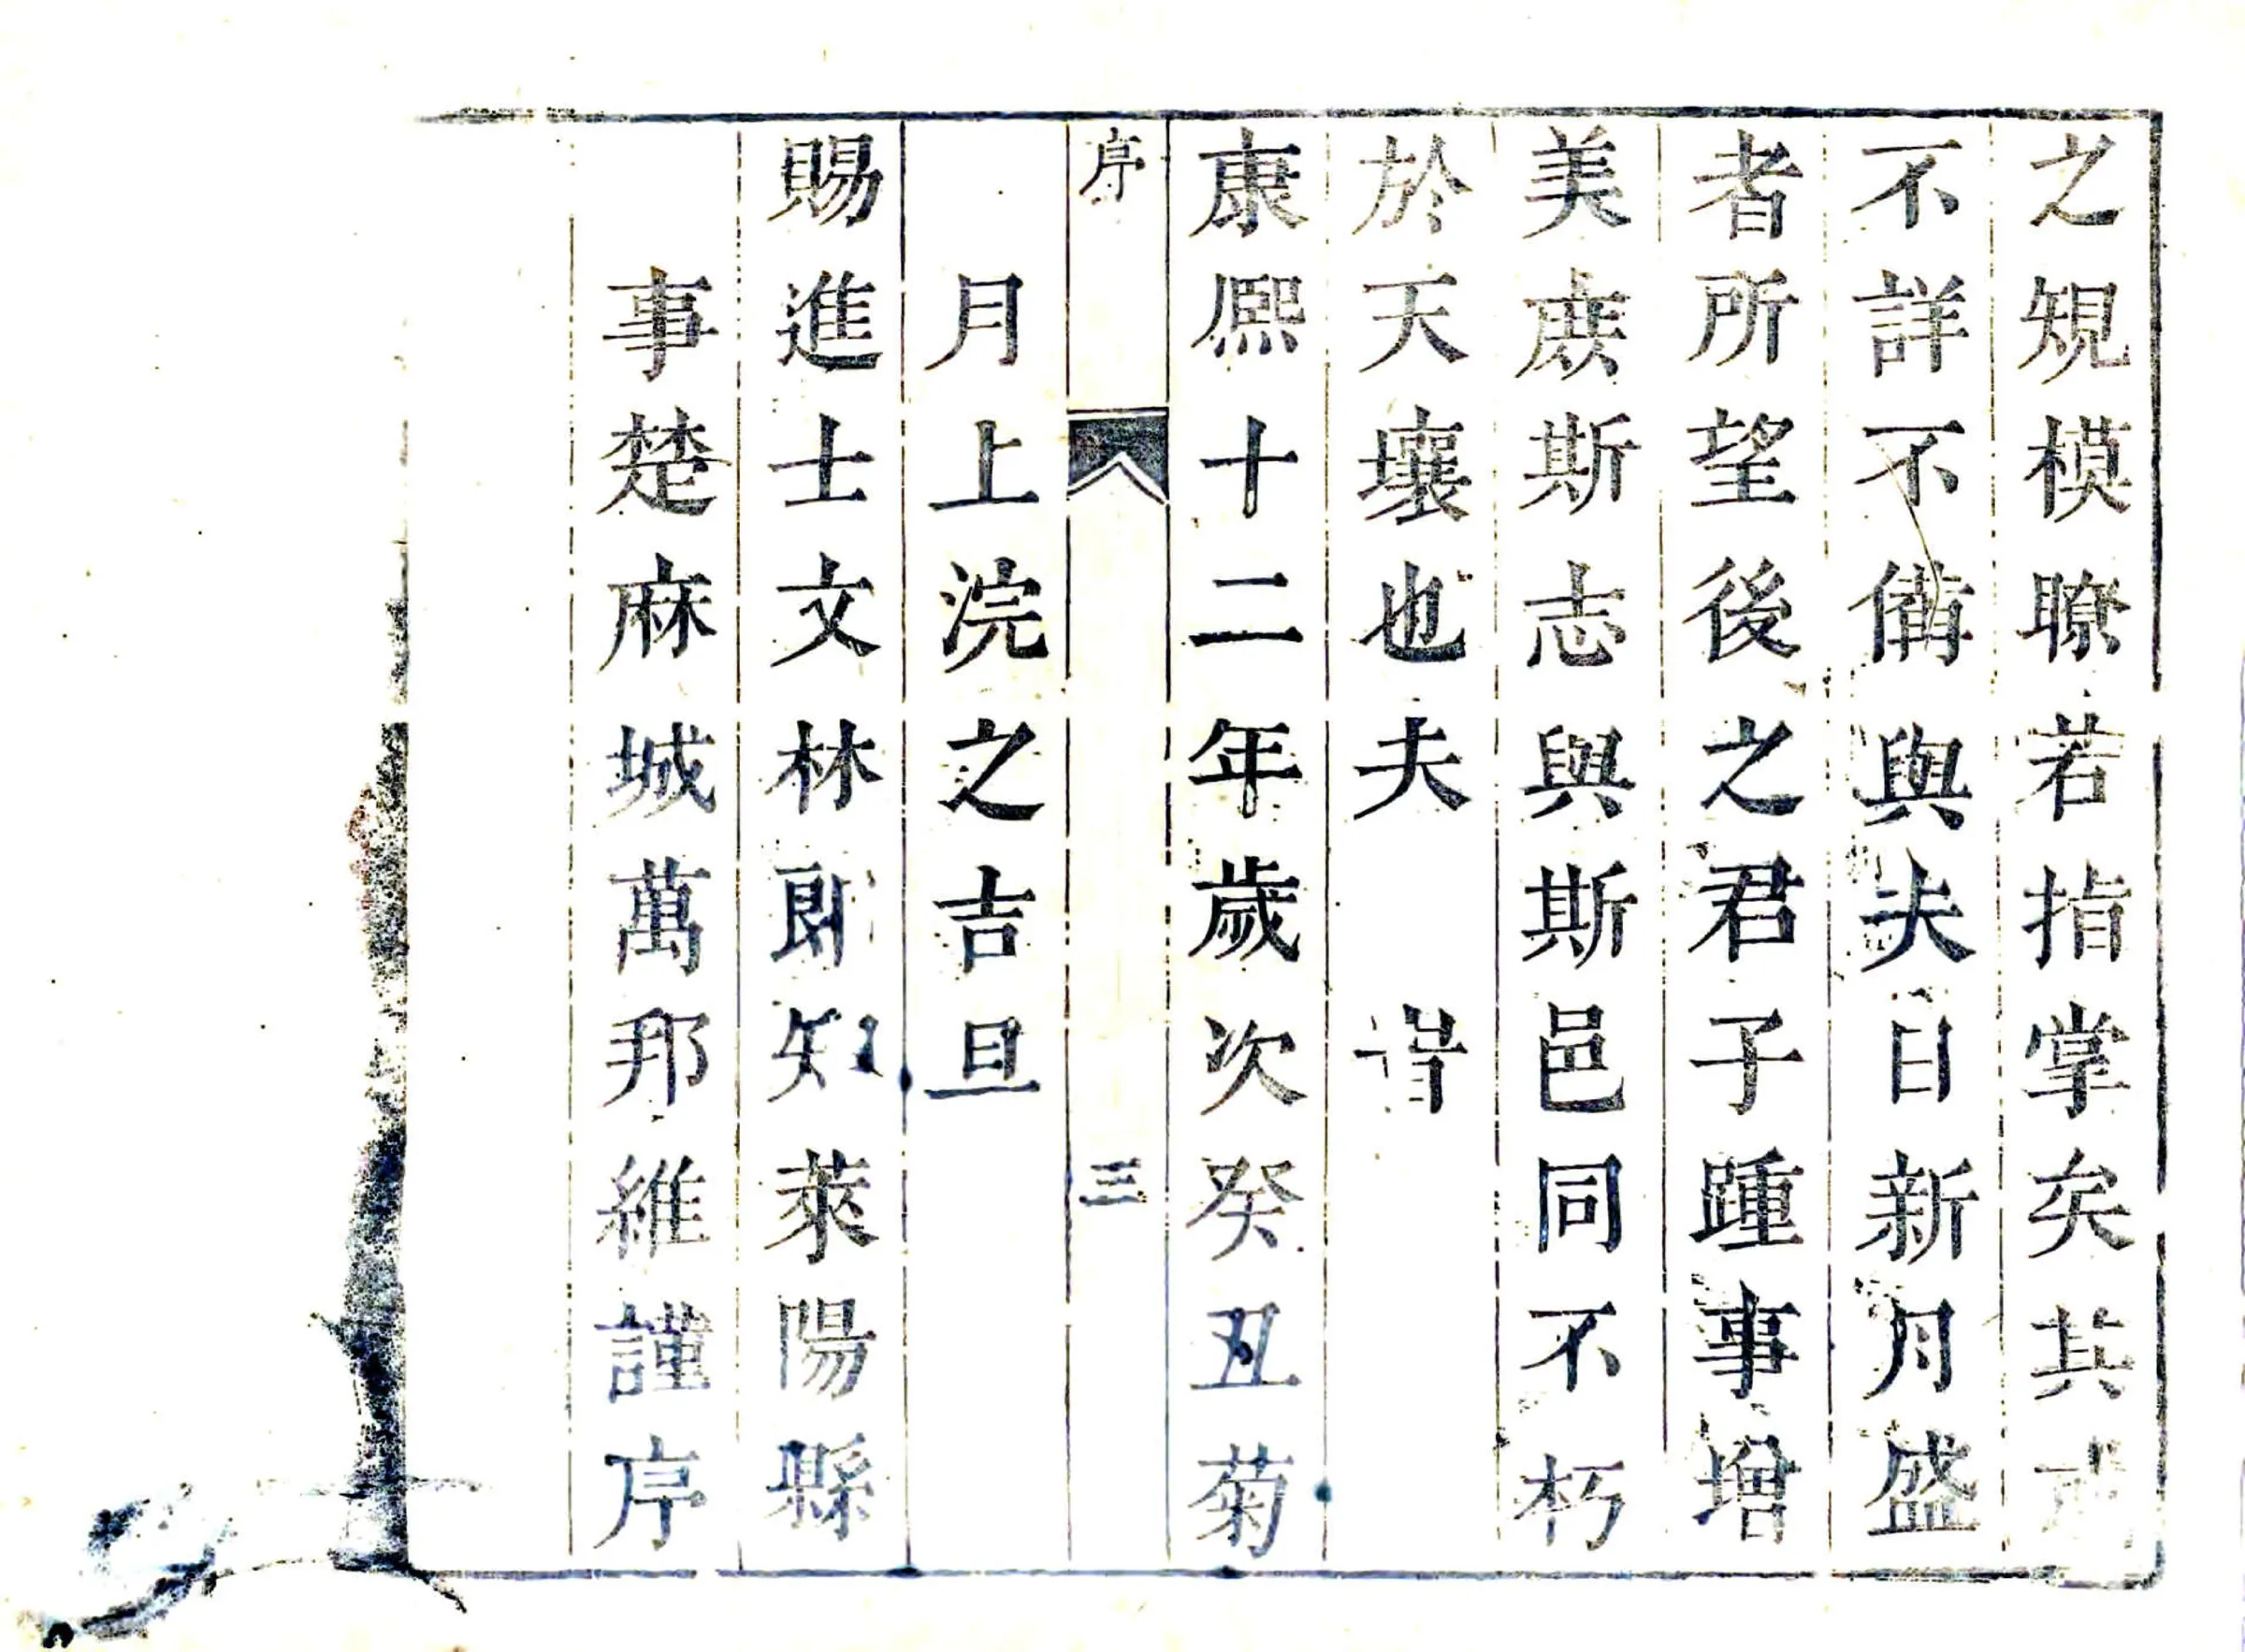 之規模瞭若指掌矣其
不詳不備與夫日新月盛
者所望後之君子踵事增
美庻斯志與斯邑同不朽
於天壤也夫　　旹
康熈十二年歲次癸丑菊
序　三
月上浣之吉旦
賜進士文林郎知萊陽縣
事楚麻城萬邦維謹序